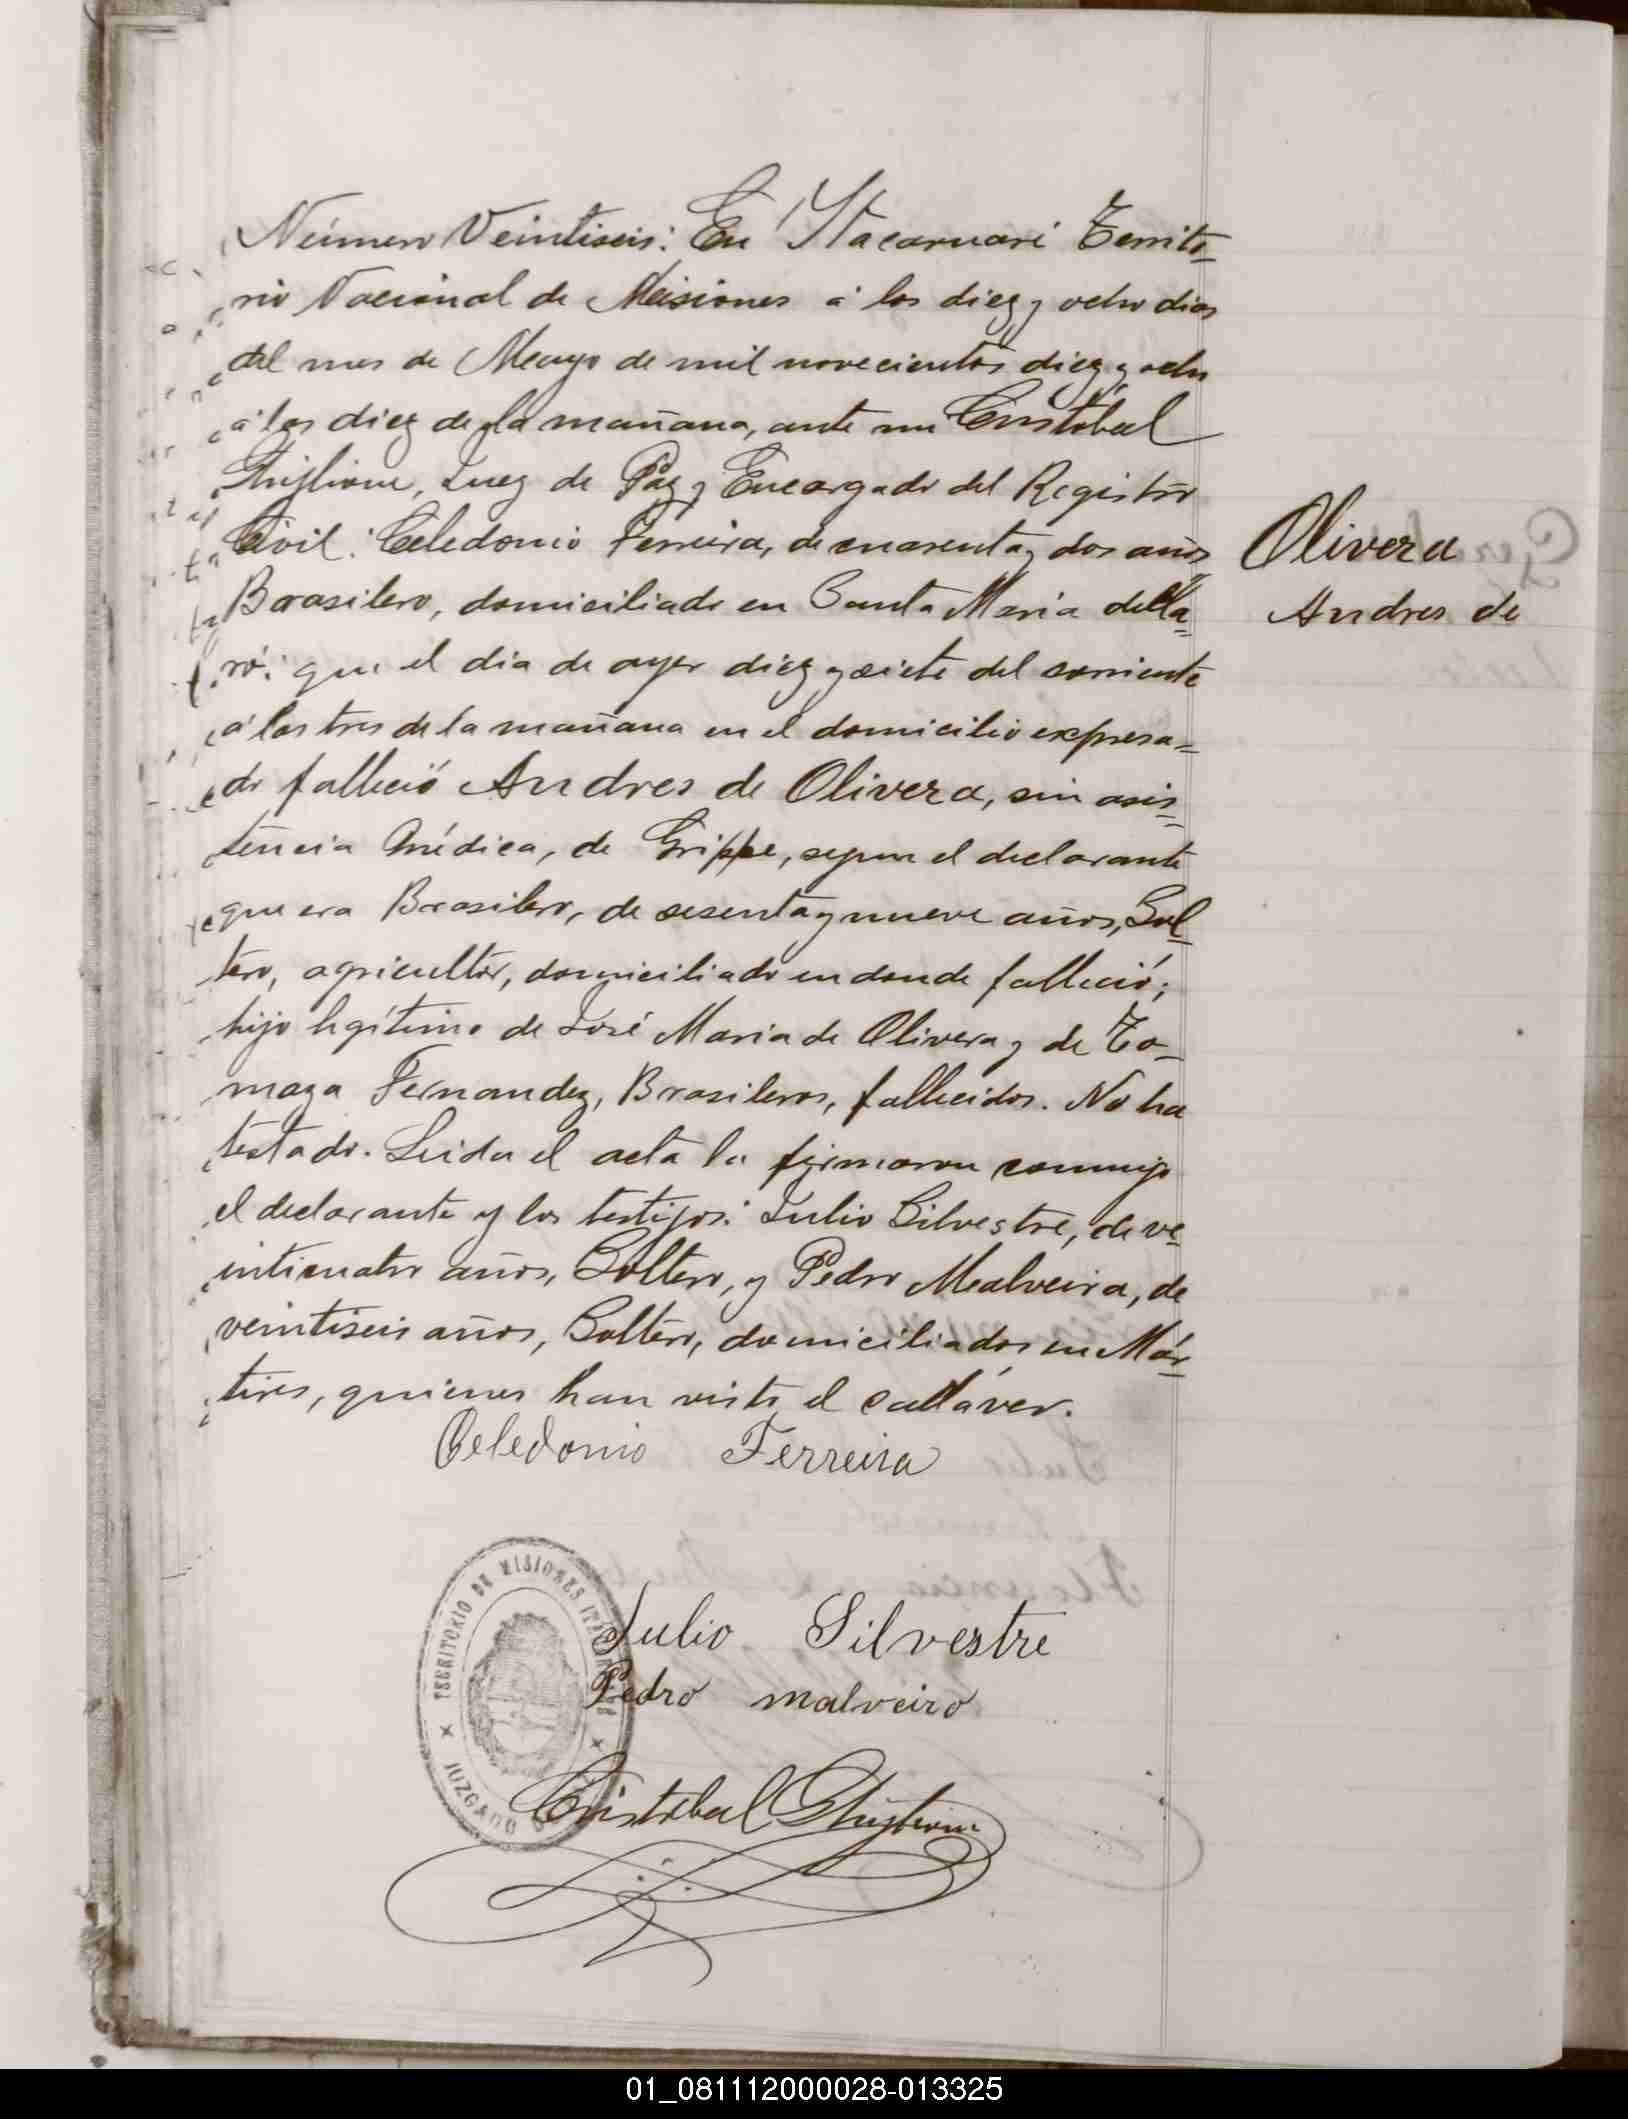 Número Veintiseis: En Itacaruaré Territo-
rio Nacional de Misiones á los diez y ocho dias
del mes de Mayo de mil novecientos diez y ocho
á las diez de la mañana, ante mi Cristóbal
Juez de Paz y Encargado del Registro
Civil: Celedonio Ferreira, de cuarenta y dos años
Brasilero, domiciliado en Santa Maria
que el dia de ayer diez y siete del corriente
á las tres de la mañana en el domicilio expresa=
do falleció Andres de Olivera, sin asis=
tencia médica, de Grippe, segun el declarante
que era Brasilero, de sesenta y nueve años, Sol-
tero, agricultor, domiciliado en donde falleció;
hijo legítimo de José Maria de Olivera y de To-
maza Fernandez, Brasileros, fallecidos. No ha
testado. Leida el acta la firmaron conmigo
el declarante y los testigos: Julio Silvestre, de ve-
inticuatro años, Soltero, y Pedro Malveira, de
veintiseis años, Soltero, domiciliados en Már=
tires, quienes han visto el cadáver.
Celedonio Ferreira
Olivera
Andres de
TERRITORIO DE MISIONES
JUZGADO
Julio Silvestre
Pedro malveiro
Cristobal
01_081112000028-013325